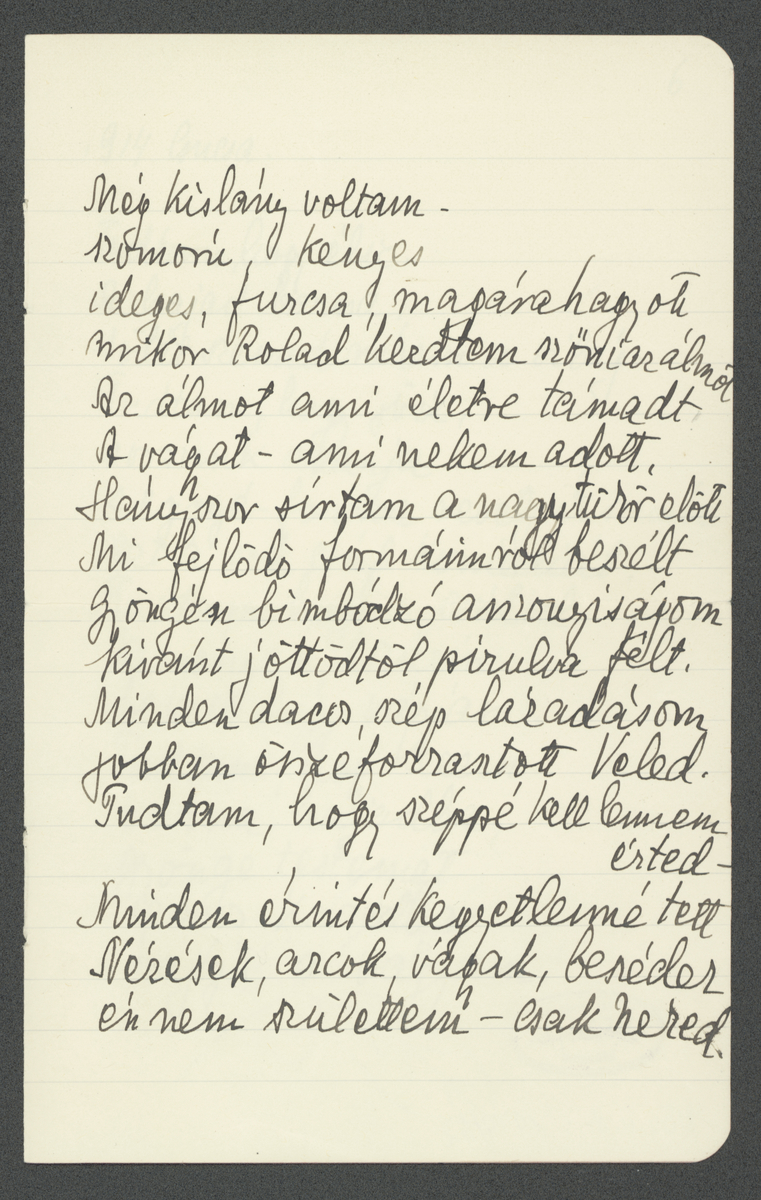 Még kislány voltam -
szomorú, kényes
ideges, furcsa, magárahagyott
mikor Rolad kezdtem szőni az álmot
Az álmot ami életre támadt
A vágyat - ami nekem adott.
Hányszor sírtam a nagy tükör előtt
Mi fejlődő formáimról beszélt
Gyöngén bimbódzó asszonyiságom
kivánt jöttödtől pirulva félt.
Minden dacos, szép lázadásom
jobban összeforrasztott Veled.
Tudtam, hogy széppé kell lennem
érted -
Minden érintés kegyetlenné tett
Nézések, arcok, vágyak, beszédek
én nem születtem - csak Neked.